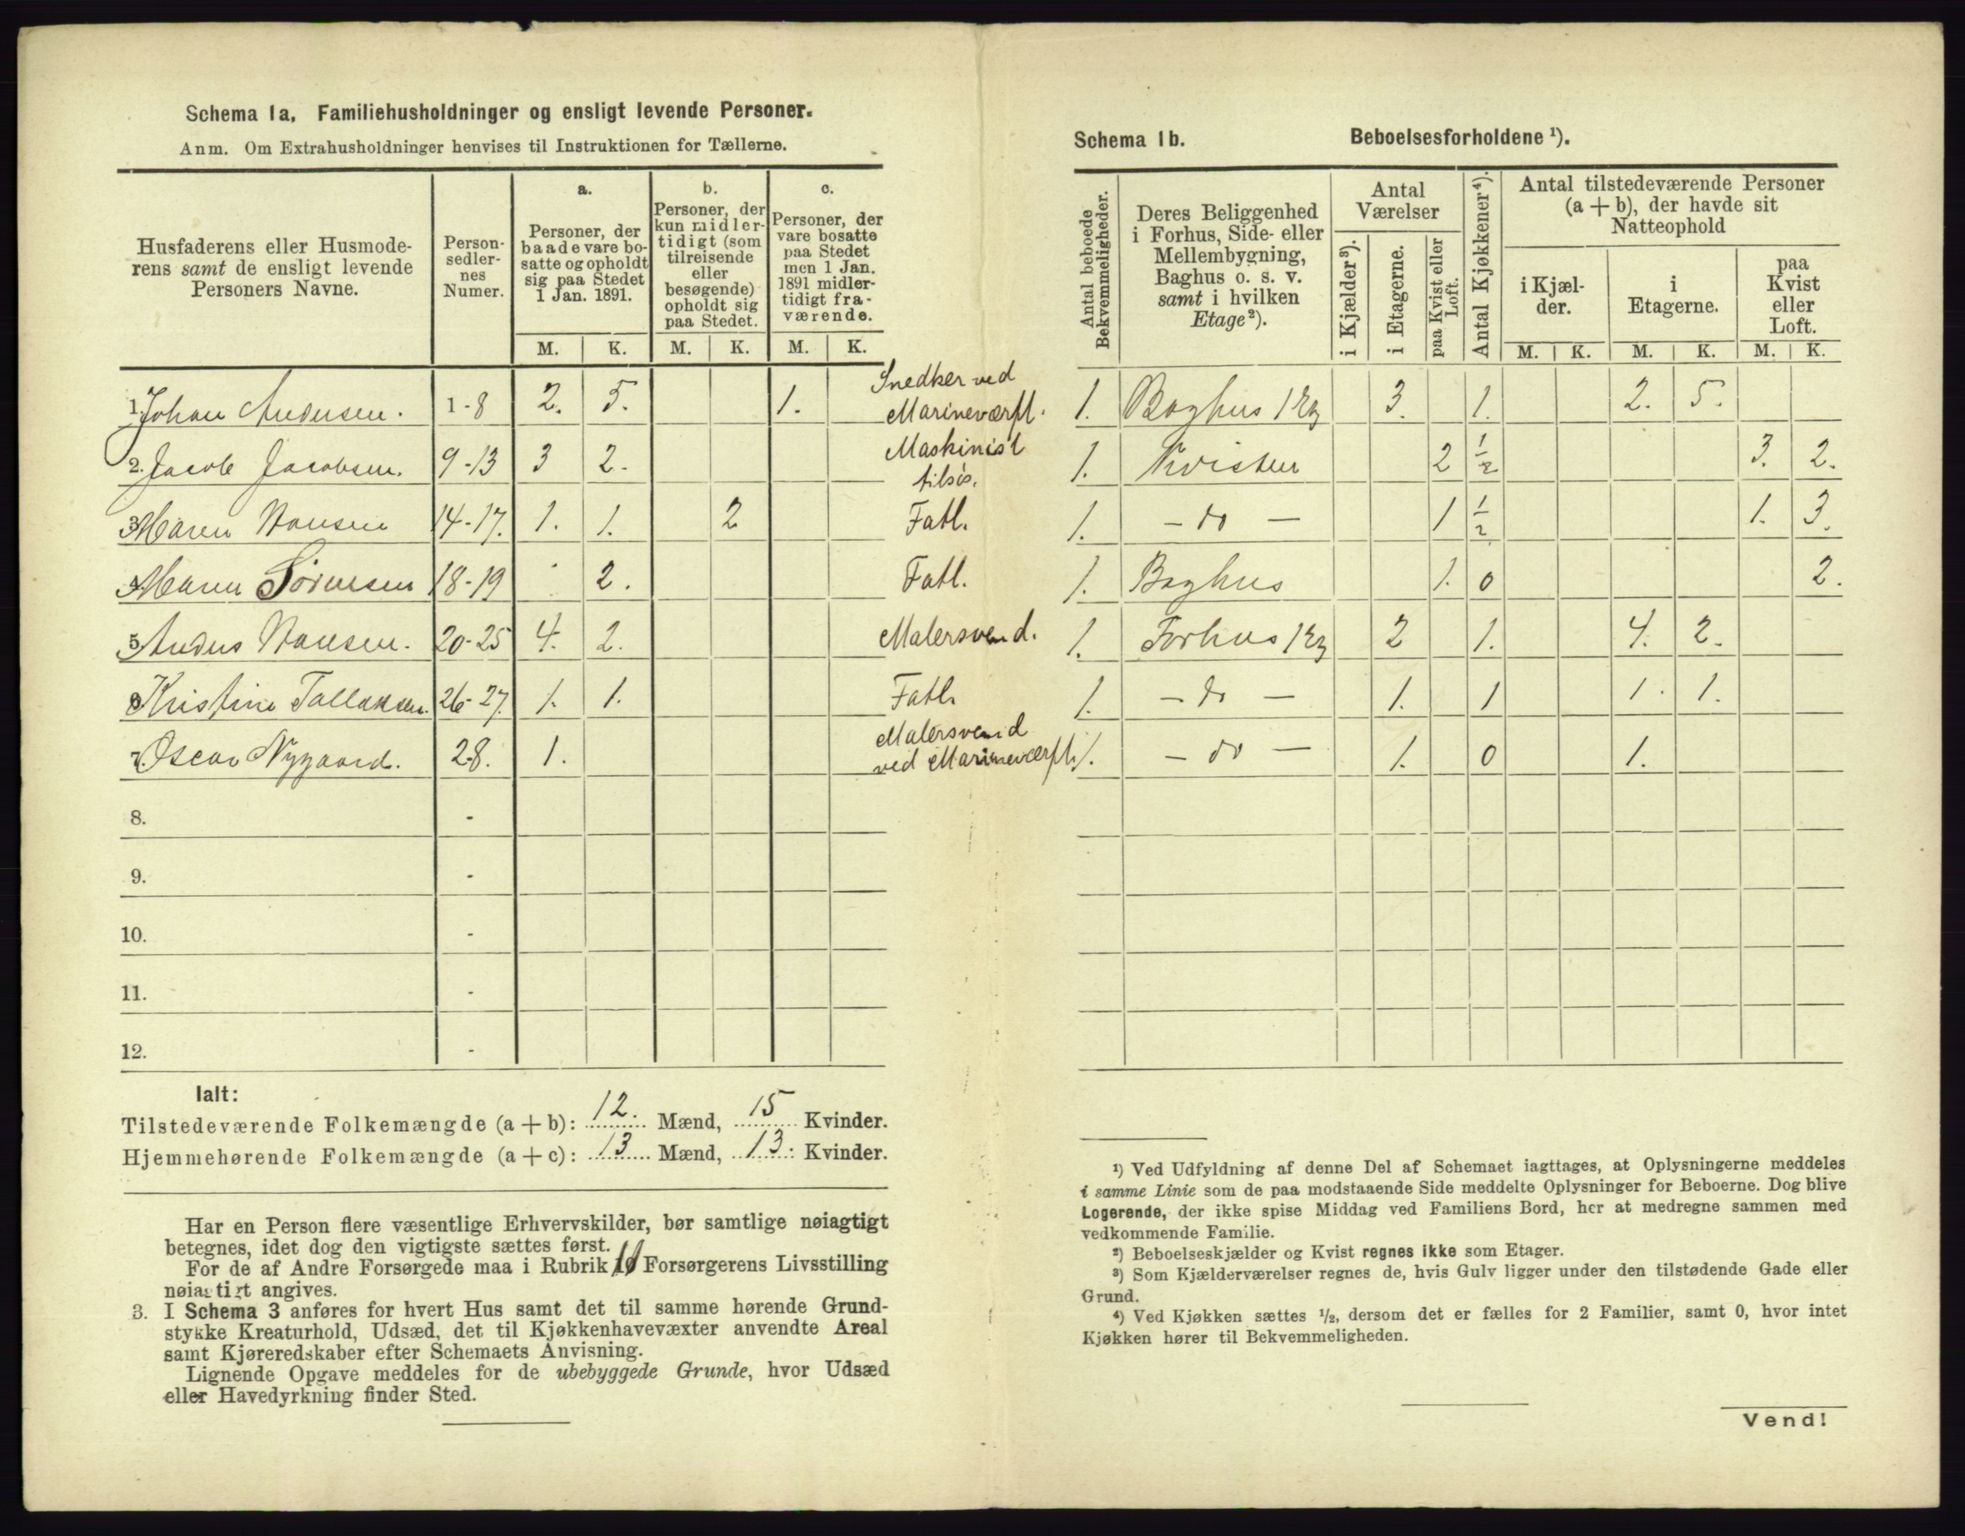 Schema 1a. Familiehusholdninger og ensligt levende Personer.
Anm. Om Extrahusholdninger henvises til Instruktionen for Tællerne.
Husfaderens eller Husmode-
rens samt de ensligt levende
Personers Navne.
Person-
sedler-
nes
Numer.
a.
Personer, der
baade vare bo-
satte og opholdt
sig paa Stedet
1 Jan. 1891.
b.
Personer, der
kun midler-
tidigt (som
tilreisende
eller
besøgende)
opholdt sig
paa Stedet.
c.
Personer, der
vare bosatte
paa Stedet
men 1 Jan.
1891 midler-
tidigt fra-
værende.
M. K. M. K. M. K.
1. Johan Andersen. 1-8 2. 5. 1. Snedker ved
Marineværft.
2. Jacob Jacobsen. 9-13 3 2. Maskinist
tilsøs.
3. Maren Hansen 14-17. 1. 1. 2 Fatl.
4. Maren Sørensen 18-19 2. Fatl.
5. Anders Hansen. 20-25 4. 2. Malersvend.
6. Kristine Tallaksen. 26-27. 1. 1. Fatl.
7. Oscar Nygaard. 28. 1. Malersvend
ved Marineværft.
8. -
9. -
10. -
11. -
12. -
Ialt:
Tilstedeværende Folkemængde (a + b): 12. Mænd, 15 Kvinder.
Hjemmehørende Folkemængde (a + c): 13 Mænd, 13. Kvinder.
Har en Person flere væsentlige Erhvervskilder, bør samtlige nøiagtigt
betegnes, idet dog den vigtigste sættes først.
For de af Andre Forsørgede maa i Rubrik 11 Forsørgerens Livsstilling
nøiagtigt angives.
3. I Schema 3 anføres for hvert Hus samt det til samme hørende Grund-
stykke Kreaturhold, Udsæd, det til Kjøkkenhavevæxter anvendte Areal
samt Kjøreredskaber efter Schemaets Anvisning.
Lignende Opgave meddeles for de ubebyggede Grunde, hvor Udsæd
eller Havedyrkning finder Sted.
Schema 1b. Beboelsesforholdene ¹).
Antal beboede
Bekvemmeligheder.
Deres Beliggenhed
i Forhus, Side- eller
Mellembygning,
Baghus o. s. v.
samt i hvilken
Etage²).
Antal
Værelser
i Kjælder³).
i Etagerne.
paa Kvist eller
Loft.
Antal Kjøkkener⁴).
Antal tilstedeværende Personer
(a + b), der havde sit
Natteophold
i Kjæl-
der.
i
Etagerne.
paa
Kvist
eller
Loft.
M. K. M. K. M. K.
1. Baghus 1 Etg 3. 1. 2. 5.
1. Kvisten 2 1/2 3. 2.
1. — do — 1 1/2 1. 3.
1. Baghus 1. 0 2.
1. Forhus 1 Etg 2 1. 4. 2.
1. — do — 1. 1 1. 1.
1. — do — 1. 0 1.
¹) Ved Udfyldning af denne Del af Schemaet iagttages, at Oplysningerne meddeles
i samme Linie som de paa modstaaende Side meddelte Oplysninger for Beboerne. Dog blive
Logerende, der ikke spise Middag ved Familiens Bord, her at medregne sammen med
vedkommende Familie.
²) Beboelseskjælder og Kvist regnes ikke som Etager.
³) Som Kjælderværelser regnes de, hvis Gulv ligger under den tilstødende Gade eller
Grund.
⁴) Ved Kjøkken sættes ½, dersom det er fælles for 2 Familier, samt 0, hvor intet
Kjøkken hører til Bekvemmeligheden.
Vend!